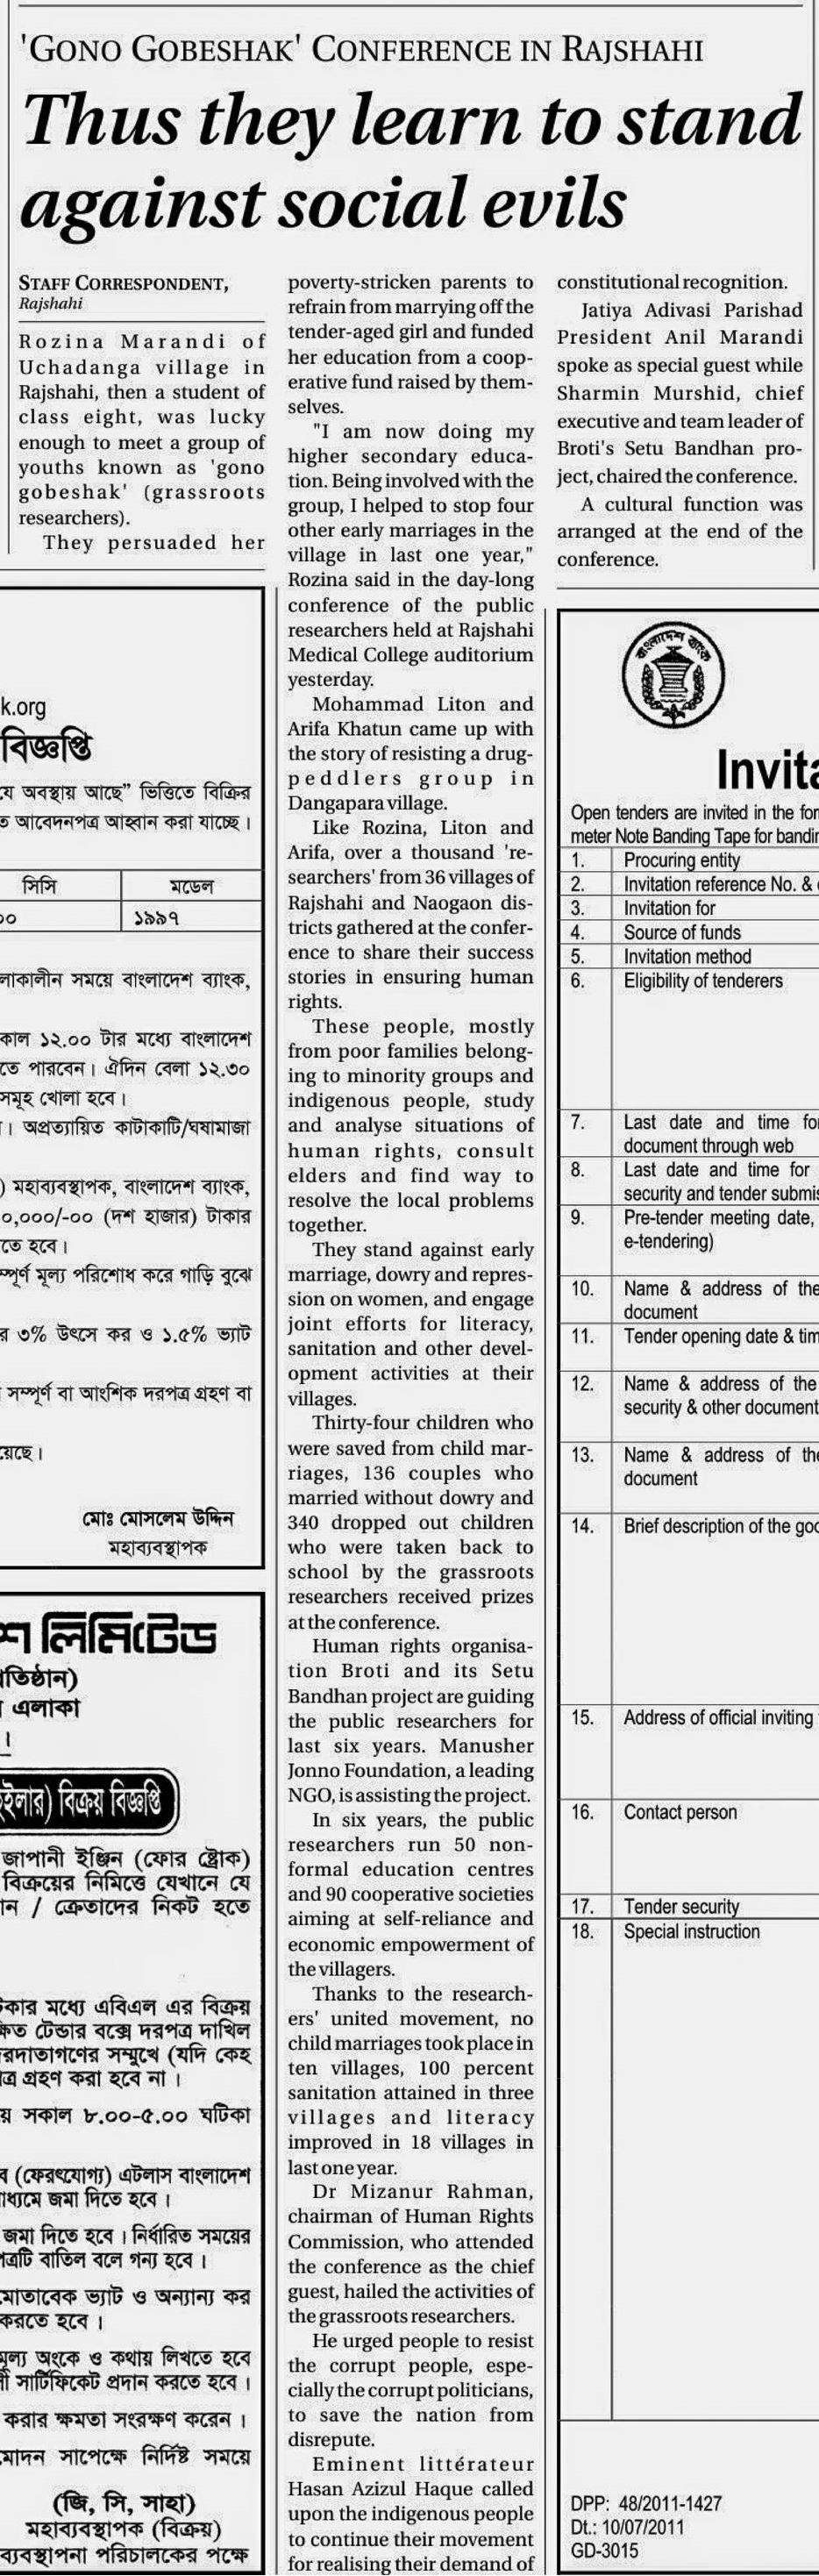 'GONO GOBESHAK' CONFERENCE IN RAJSHAHI
Thus they learn to stand
against social evils
STAFF CORRESPONDENT,
Rajshahi
Rozina Marandi of
Uchadanga village in
Rajshahi, then a student of
class eight, was lucky
enough to meet a group of
youths known as 'gono
gobeshak' (grassroots
researchers).
They persuaded her
poverty-stricken parents to
refrain from marrying off the
tender-aged girl and funded
her education from a coop-
erative fund raised by them-
selves.
"I am now doing my
higher secondary educa-
tion. Being involved with the
group, I helped to stop four
other early marriages in the
village in last one year,"
Rozina said in the day-long
conference of the public
researchers held at Rajshahi
Medical College auditorium
yesterday.
Mohammad Liton and
Arifa Khatun came up with
the story of resisting a drug-
peddlers group in
Dangapara village.
Like Rozina, Liton and
Arifa, over a thousand 're-
searchers' from 36 villages of
Rajshahi and Naogaon dis-
tricts gathered at the confer-
ence to share their success
stories in ensuring human
rights.
These people, mostly
from poor families belong-
ing to minority groups and
indigenous people, study
and analyse situations of
human rights, consult
elders and find way to
resolve the local problems
together.
They stand against early
marriage, dowry and repres-
sion on women, and engage
joint efforts for literacy,
sanitation and other devel-
opment activities at their
villages.
Thirty-four children who
were saved from child mar-
riages, 136 couples who
married without dowry and
340 dropped out children
who were taken back to
school by the grassroots
researchers received prizes
at the conference.
Human rights organisa-
tion Broti and its Setu
Bandhan project are guiding
the public researchers for
last six years. Manusher
Jonno Foundation, a leading
NGO, is assisting the project.
In six years, the public
researchers run 50 non-
formal education centres
and 90 cooperative societies
aiming at self-reliance and
economic empowerment of
the villagers.
Thanks to the research-
ers' united movement, no
child marriages took place in
ten villages, 100 percent
sanitation attained in three
villages and literacy
improved in 18 villages in
last one year.
Dr Mizanur Rahman,
chairman of Human Rights
Commission, who attended
the conference as the chief
guest, hailed the activities of
the grassroots researchers.
He urged people to resist
the corrupt people, espe-
cially the corrupt politicians,
to save the nation from
disrepute.
Eminent littérateur
Hasan Azizul Haque called
upon the indigenous people
to continue their movement
for realising their demand of
constitutional recognition.
Jatiya Adivasi Parishad
President Anil Marandi
spoke as special guest while
Sharmin Murshid, chief
executive and team leader of
Broti's Setu Bandhan pro-
ject, chaired the conference.
A cultural function was
arranged at the end of the
conference.
k.org
বিজ্ঞপ্তি
যে অবস্থায় আছে” ভিত্তিতে বিক্রির
ত আবেদনপত্র আহ্বান করা যাচ্ছে।
সিসি মডেল
০০ ১৯৯৭
লাকালীন সময়ে বাংলাদেশ ব্যাংক,
কাল ১২.০০ টার মধ্যে বাংলাদেশ
তে পারবেন। ঐদিন বেলা ১২.৩০
সমূহ খোলা হবে।
। অপ্রত্যায়িত কাটাকাটি/ঘষামাজা
) মহাব্যবস্থাপক, বাংলাদেশ ব্যাংক,
০,০০০/-০০ (দশ হাজার) টাকার
তে হবে।
ম্পূর্ণ মূল্য পরিশোধ করে গাড়ি বুঝে
র ৩% উৎসে কর ও ১.৫% ভ্যাট
সম্পূর্ণ বা আংশিক দরপত্র গ্রহণ বা
য়েছে।
মোঃ মোসলেম উদ্দিন
মহাব্যবস্থাপক
শ লিমিটেড
প্রতিষ্ঠান)
এলাকা
।
হুইলার) বিক্রয় বিজ্ঞপ্তি
জাপানী ইঞ্জিন (ফোর ষ্ট্রোক)
বিক্রয়ের নিমিত্তে যেখানে যে
ান / ক্রেতাদের নিকট হতে
টকার মধ্যে এবিএল এর বিক্রয়
ক্ষিত টেন্ডার বক্সে দরপত্র দাখিল
দরদাতাগণের সম্মুখে (যদি কেহ
ত্র গ্রহণ করা হবে না।
য় সকাল ৮.০০-৫.০০ ঘটিকা
ব (ফেরৎযোগ্য) এটলাস বাংলাদেশ
মাধ্যমে জমা দিতে হবে।
জমা দিতে হবে। নির্ধারিত সময়ের
পত্রটি বাতিল বলে গন্য হবে।
মোতাবেক ভ্যাট ও অন্যান্য কর
করতে হবে।
মূল্য অংকে ও কথায় লিখতে হবে
সার্টিফিকেট প্রদান করতে হবে।
করার ক্ষমতা সংরক্ষণ করেন।
মোদন সাপেক্ষে নির্দিষ্ট সময়ে
(জি, সি, সাহা)
মহাব্যবস্থাপক (বিক্রয়)
ব্যবস্থাপনা পরিচালকের পক্ষে
বাংলাদেশ ব্যাংক
Invita
Open tenders are invited in the for
meter Note Banding Tape for bandin
1. Procuring entity
2. Invitation reference No. &
3. Invitation for
4. Source of funds
5. Invitation method
6. Eligibility of tenderers
7. Last date and time fo
document through web
8. Last date and time for
security and tender submis
9. Pre-tender meeting date,
e-tendering)
10. Name & address of the
document
11. Tender opening date & tim
12. Name & address of the
security & other document
13. Name & address of the
document
14. Brief description of the goo
15. Address of official inviting
16. Contact person
17. Tender security
18. Special instruction
DPP: 48/2011-1427
Dt.: 10/07/2011
GD-3015